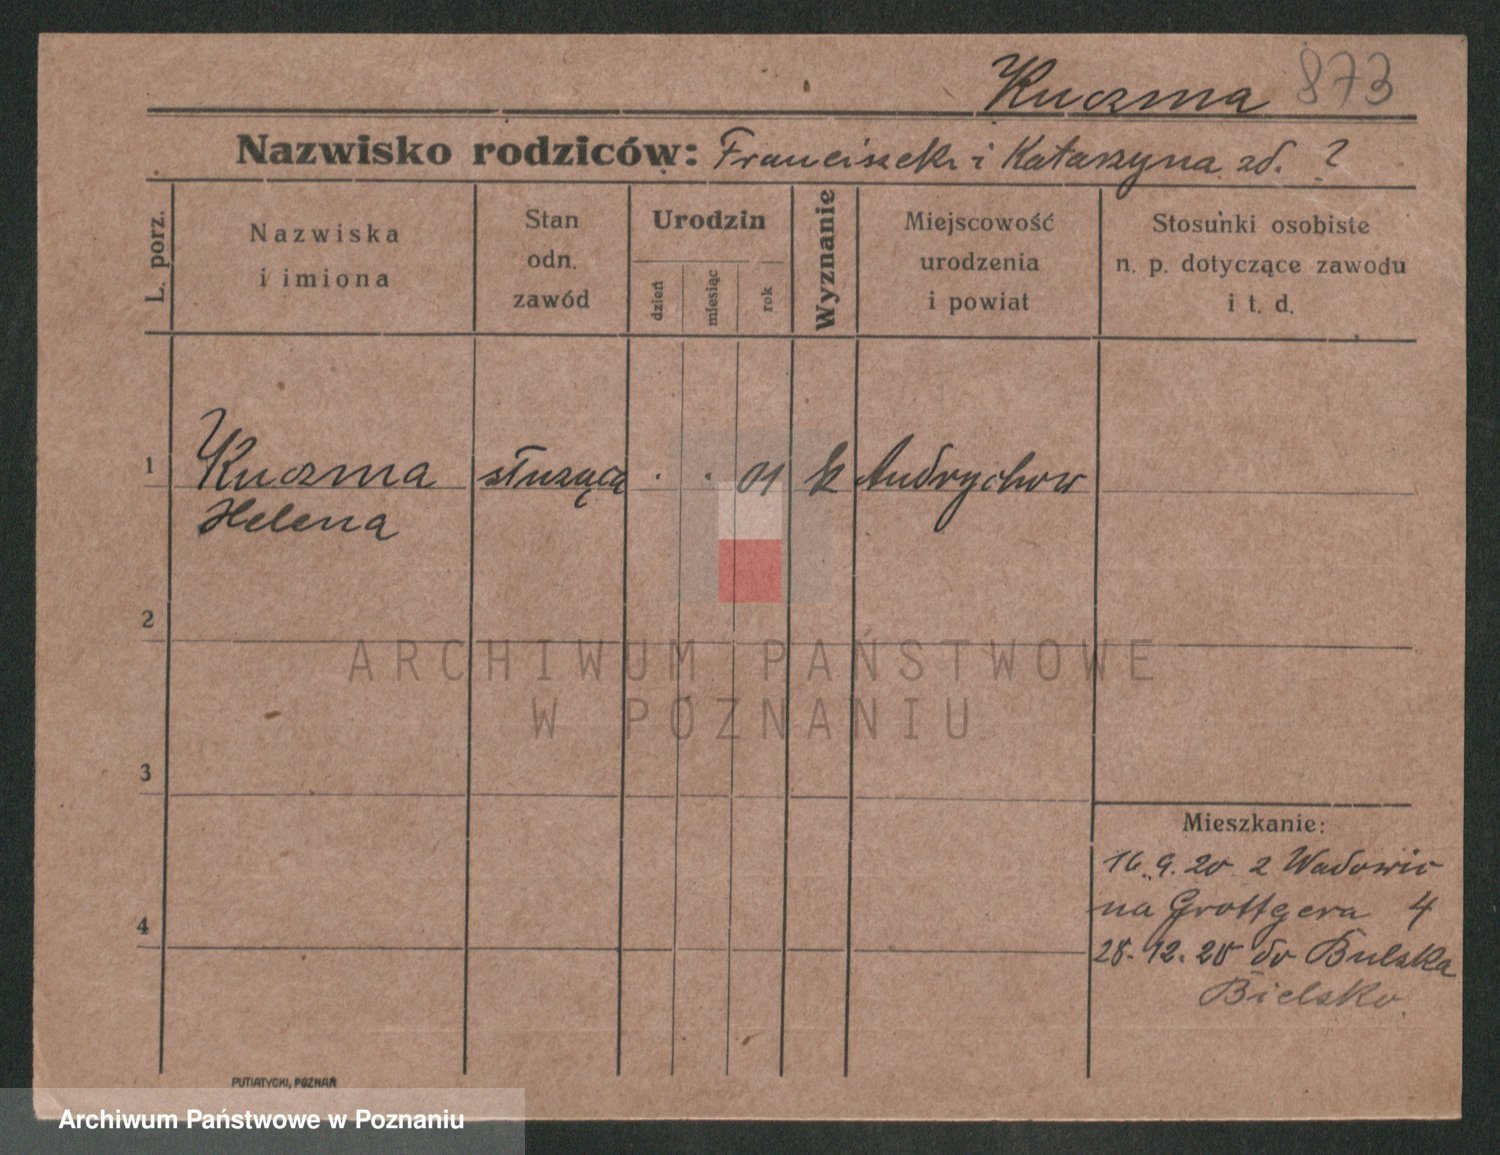 Kuczma 873
Nazwisko rodziców: Franciszek i Katarzyna zd. ?
L. porz.
Nazwiska
i imiona
Stan
odn.
zawód
Urodzin
dzień
miesiąc
rok
Wyznanie
Miejscowość
urodzenia
i powiat
Stosunki osobiste
n. p. dotyczące zawodu
i t. d.
1 Kuczma służąca . . 01 k Andrychow
Helena
2
ARCHIWUM PAŃSTWOWE
W POZNANIU
3
Mieszkanie:
16.9.20 z Wadowic
na Grottgera 4
4
28.12.20 do Bulska
Bielsko
PUTIATYCKI, POZNAŃ
Archiwum Państwowe w Poznaniu